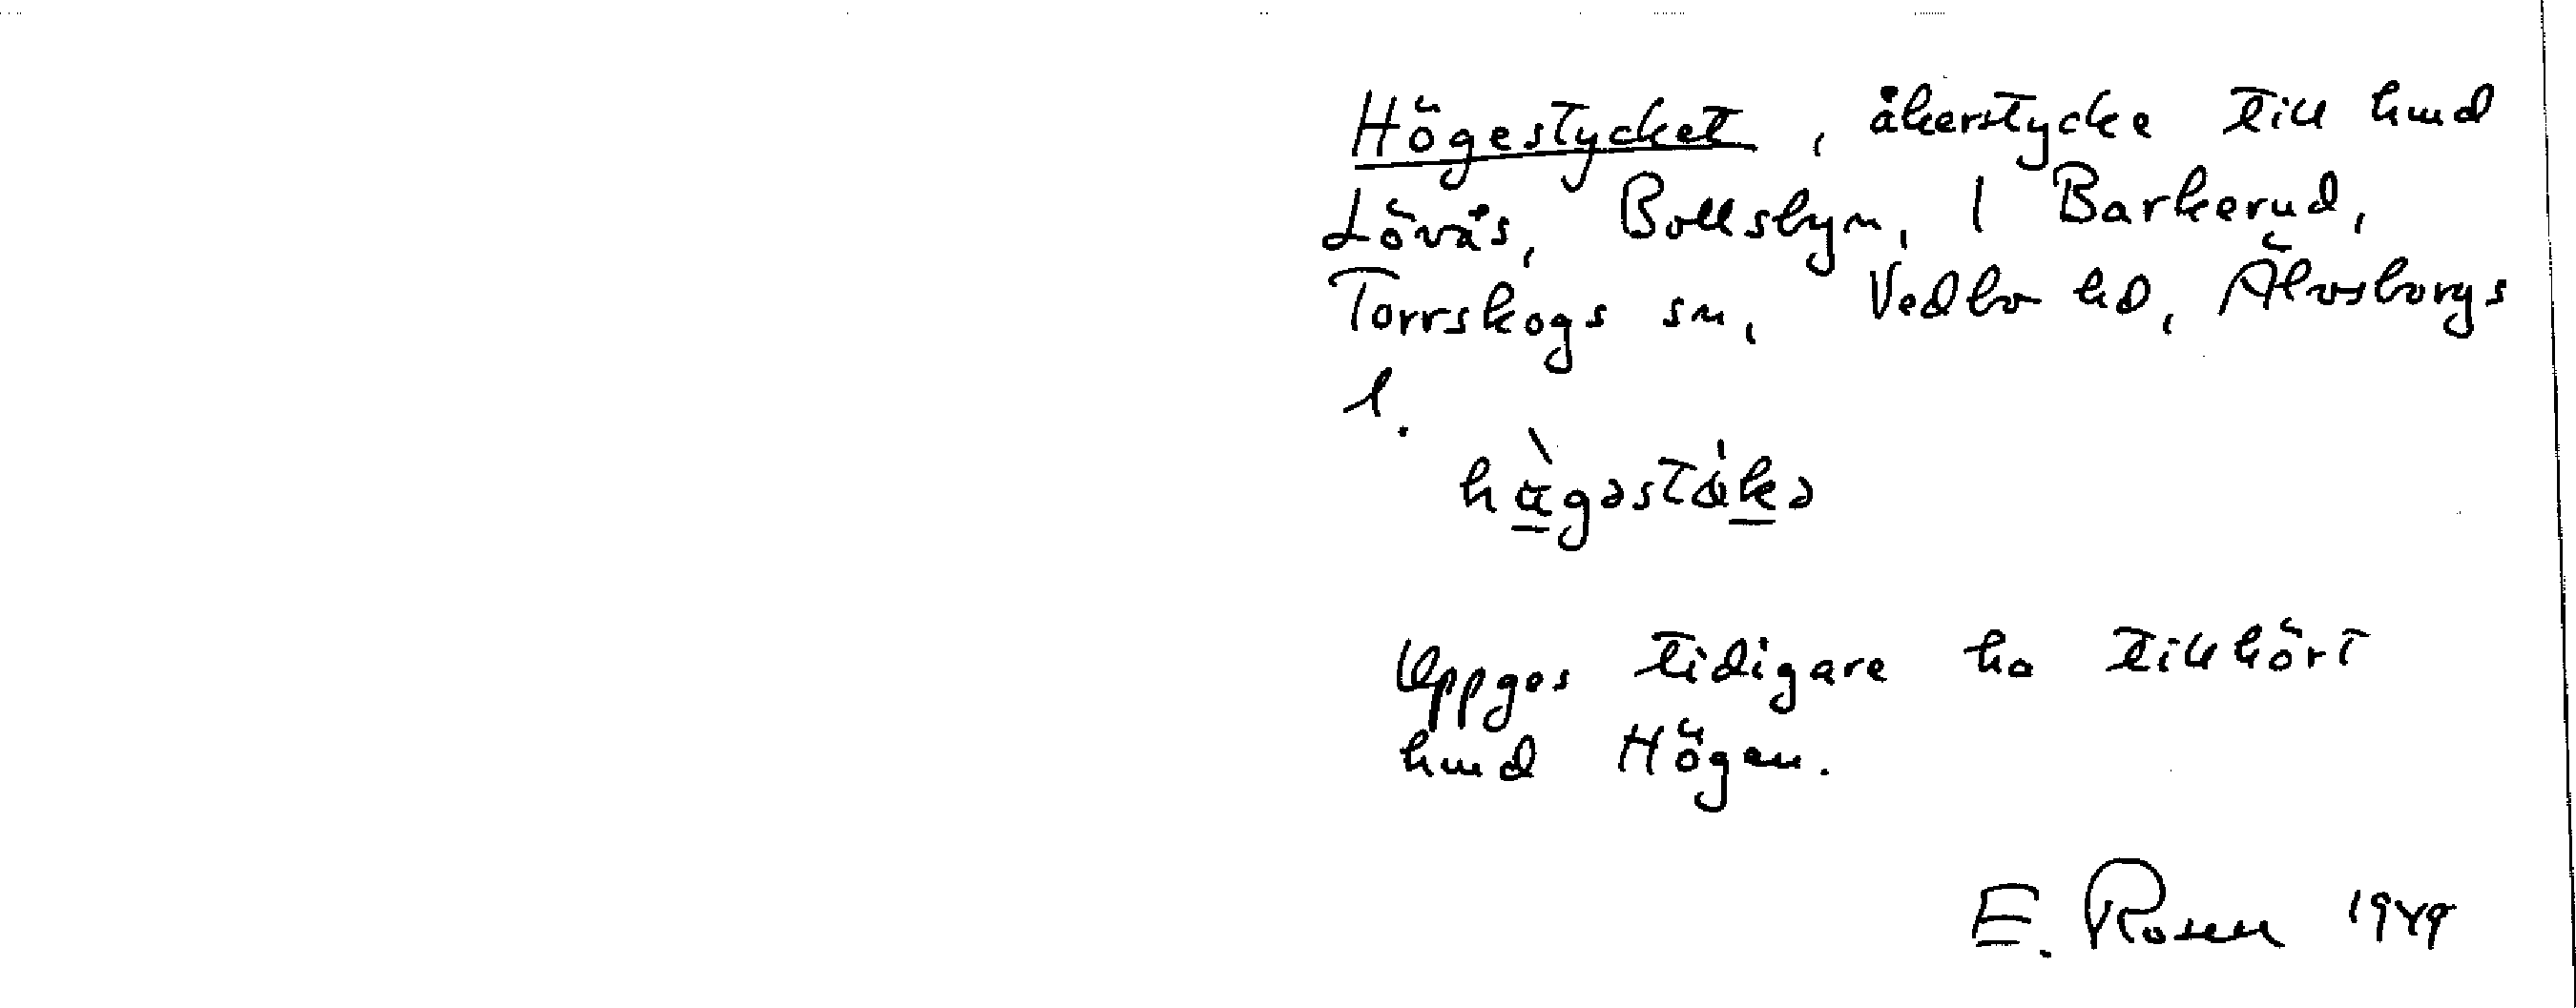 Högestycket, åkerstycke till hmd
Lövås, Bollsbyn, 1 Barkerud,
Torrskogs sn, Vedbo hd, Älvsborgs
l.
Uppges tidigare ha tillhört
hmd Högen.
E. Rosen 1949